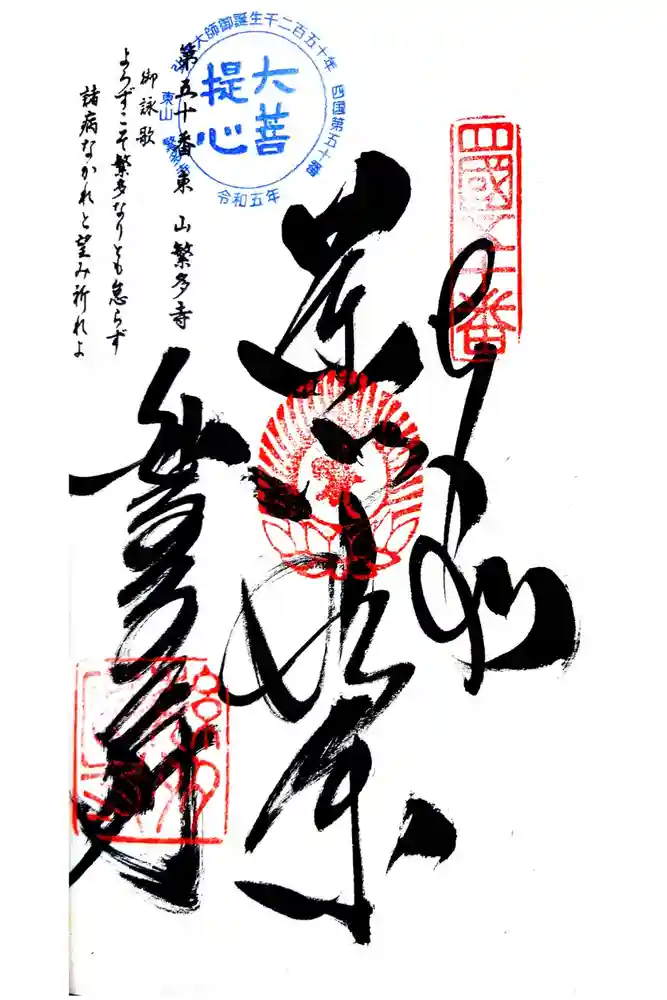 四國五十番
奉納
大師御誕生千二百五十年 四国第五十番
大善
提心
令和五年
東山 繁多寺
第五十番東山繁多寺
御詠歌
よろずこそ繁多なりとも怠らず
諸病なかれと望み祈れよ
繁多寺